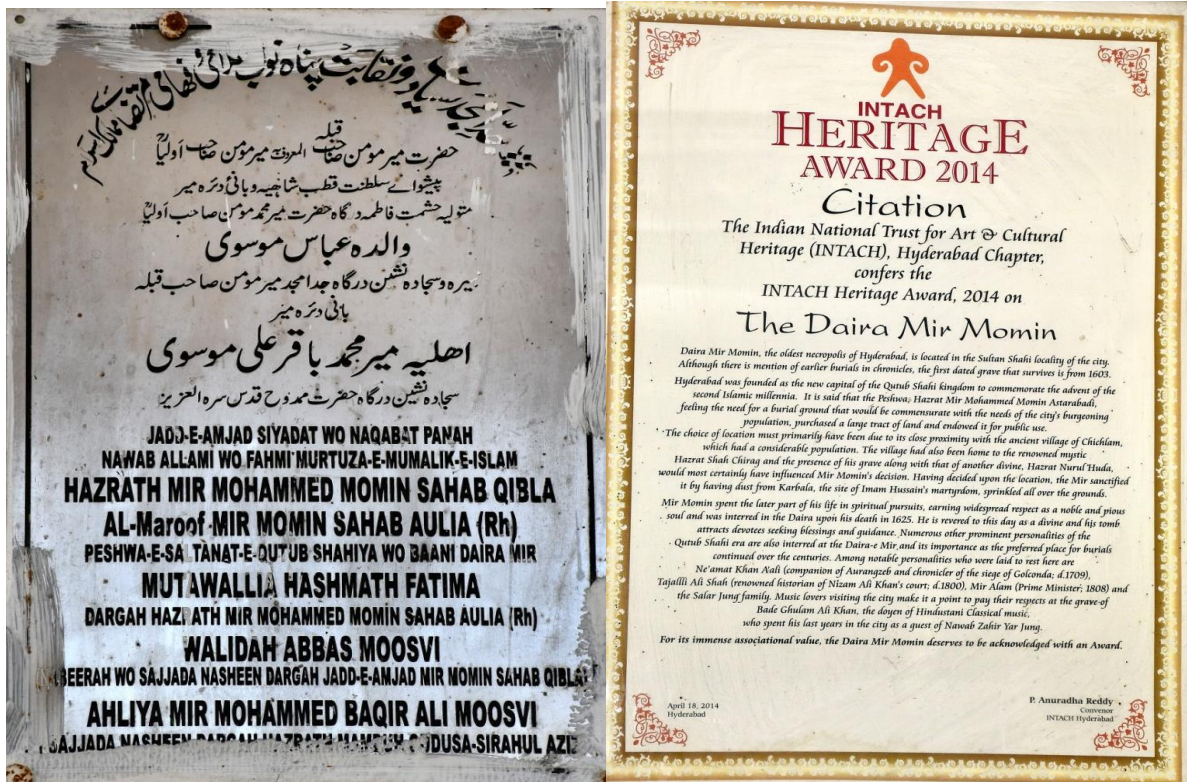 حضرت میر مومن صاحب قبلہ المعروف میر مومن صاحب اولیاؒ
پیشوائے سلطنت قطب شاہیہ و بانی دئرہ میر
متولیہ حشمت فاطمہ درگاہ حضرت میر محمد مومن صاحب اولیاؒ
والدہ عباس موسوی
و سجادہ نشین درگاہ جد امجد میر مومن صاحب قبلہ
بانی دئرہ میر
اھلیہ میر محمد باقر علی موسوی
سجادہ نشین درگاہ حضرت ممدوح قدس سرہ العزیز
JADD-E-AMJAD SIYADAT WO NAQABAT PANAH
NAWAB ALLAMI WO FAHMI MURTUZA-E-MUMALIK-E-ISLAM
HAZRATH MIR MOHAMMED MOMIN SAHAB QIBLA
AL-Maroof MIR MOMIN SAHAB AULIA (Rh)
PESHWA-E-SALTANAT-E-QUTUB SHAHIYA WO BAANI DAIRA MIR
MUTAWALLIA HASHMATH FATIMA
DARGAH HAZRATH MIR MOHAMMED MOMIN SAHAB AULIA (Rh)
WALIDAH ABBAS MOOSVI
BEERAH WO SAJJADA NASHEEN DARGAH JADD-E-AMJAD MIR MOMIN SAHAB QIBLA
AHLIYA MIR MOHAMMED BAQIR ALI MOOSVI
SAJJADA NASHEEN DARGAH HAZRATH MAMDUH QUDUSA-SIRAHUL AZIZ
INTACH
HERITAGE
AWARD 2014
Citation
The Indian National Trust for Art & Cultural
Heritage (INTACH), Hyderabad Chapter,
confers the
INTACH Heritage Award, 2014 on
The Daira Mir Momin
Daira Mir Momin, the oldest necropolis of Hyderabad, is located in the Sultan Shahi locality of the city.
Although there is mention of earlier burials in chronicles, the first dated grave that survives is from 1603.
Hyderabad was founded as the new capital of the Qutub Shahi kingdom to commemorate the advent of the
second Islamic millennia. It is said that the Peshwa, Hazrat Mir Mohammed Momin Astarabadi,
feeling the need for a burial ground that would be commensurate with the needs of the city's burgeoning
population, purchased a large tract of land and endowed it for public use.
The choice of location must primarily have been due to its close proximity with the ancient village of Chichlam,
which had a considerable population. The village had also been home to the renowned mystic
Hazrat Shah Chirag and the presence of his grave along with that of another divine, Hazrat Nurul Huda,
would most certainly have influenced Mir Momin's decision. Having decided upon the location, the Mir sanctified
it by having dust from Karbala, the site of Imam Hussain's martyrdom, sprinkled all over the grounds.
Mir Momin spent the later part of his life in spiritual pursuits, earning widespread respect as a noble and pious
soul and was interred in the Daira upon his death in 1625. He is revered to this day as a divine and his tomb
attracts devotees seeking blessings and guidance. Numerous other prominent personalities of the
Qutub Shahi era are also interred at the Daira-e Mir and its importance as the preferred place for burials
continued over the centuries. Among notable personalities who were laid to rest here are
Ne'amat Khan A'ali (companion of Aurangzeb and chronicler of the siege of Golconda; d.1709),
Tajallli Ali Shah (renowned historian of Nizam Ali Khan's court; d.1800), Mir Alam (Prime Minister; 1808) and
the Salar Jung family. Music lovers visiting the city make it a point to pay their respects at the grave of
Bade Ghulam Ali Khan, the doyen of Hindustani Classical music,
who spent his last years in the city as a guest of Nawab Zahir Yar Jung.
For its immense associational value, the Daira Mir Momin deserves to be acknowledged with an Award.
April 18, 2014
Hyderabad
P. Anuradha Reddy
Convenor
INTACH Hyderabad